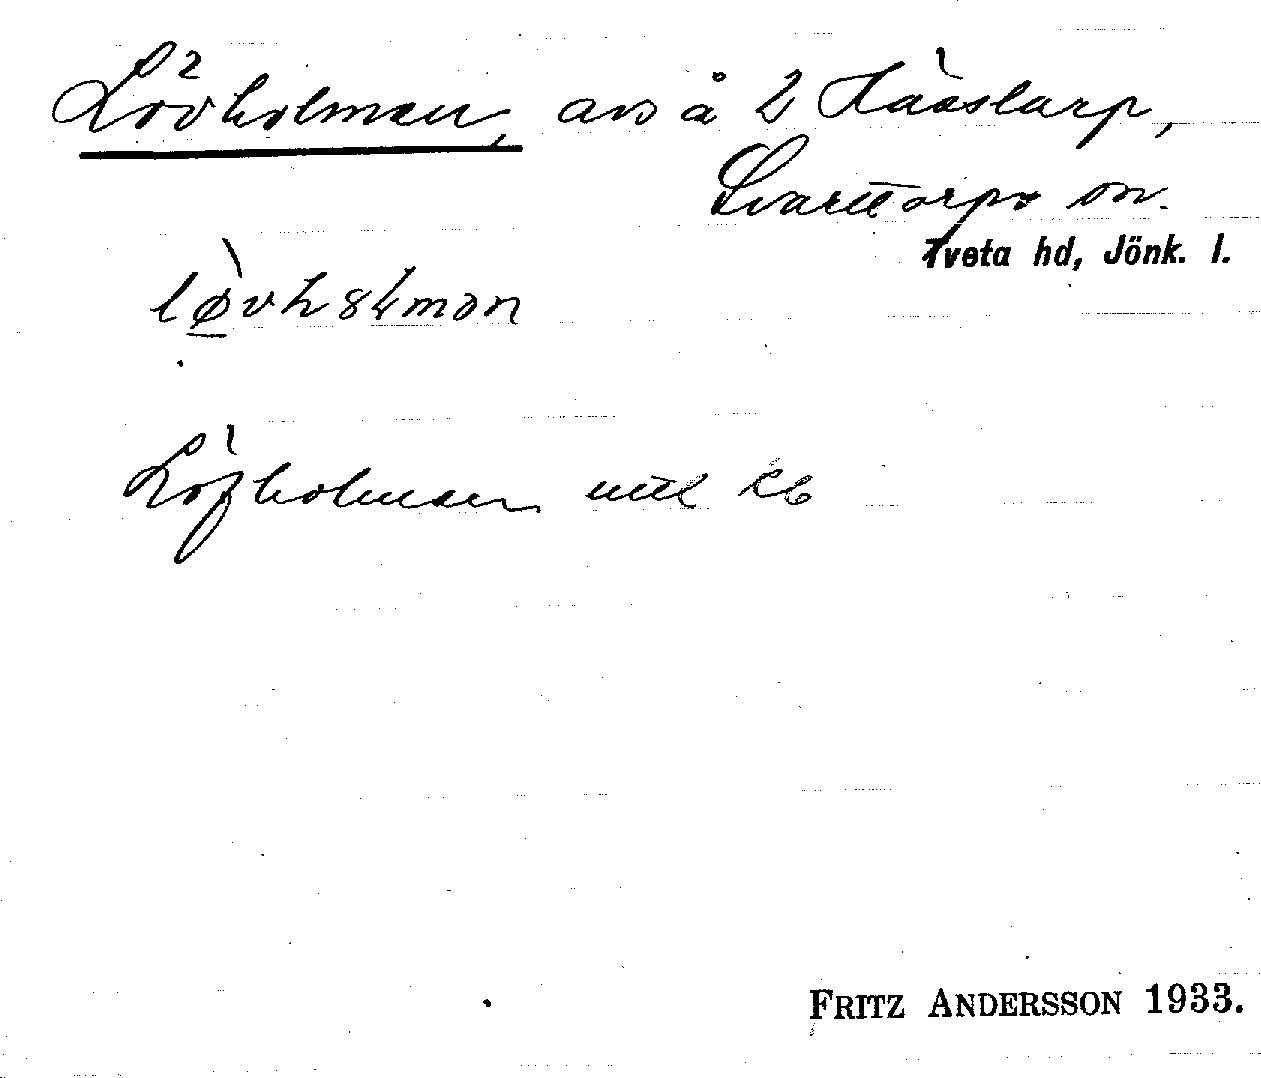 Lövholmen, avs å 2 Kåxtarp,
Svarttorps sn.
Tveta hd, Jönk. l.
Löfholmen uttl kb
FRITZ ANDERSSON 1933.